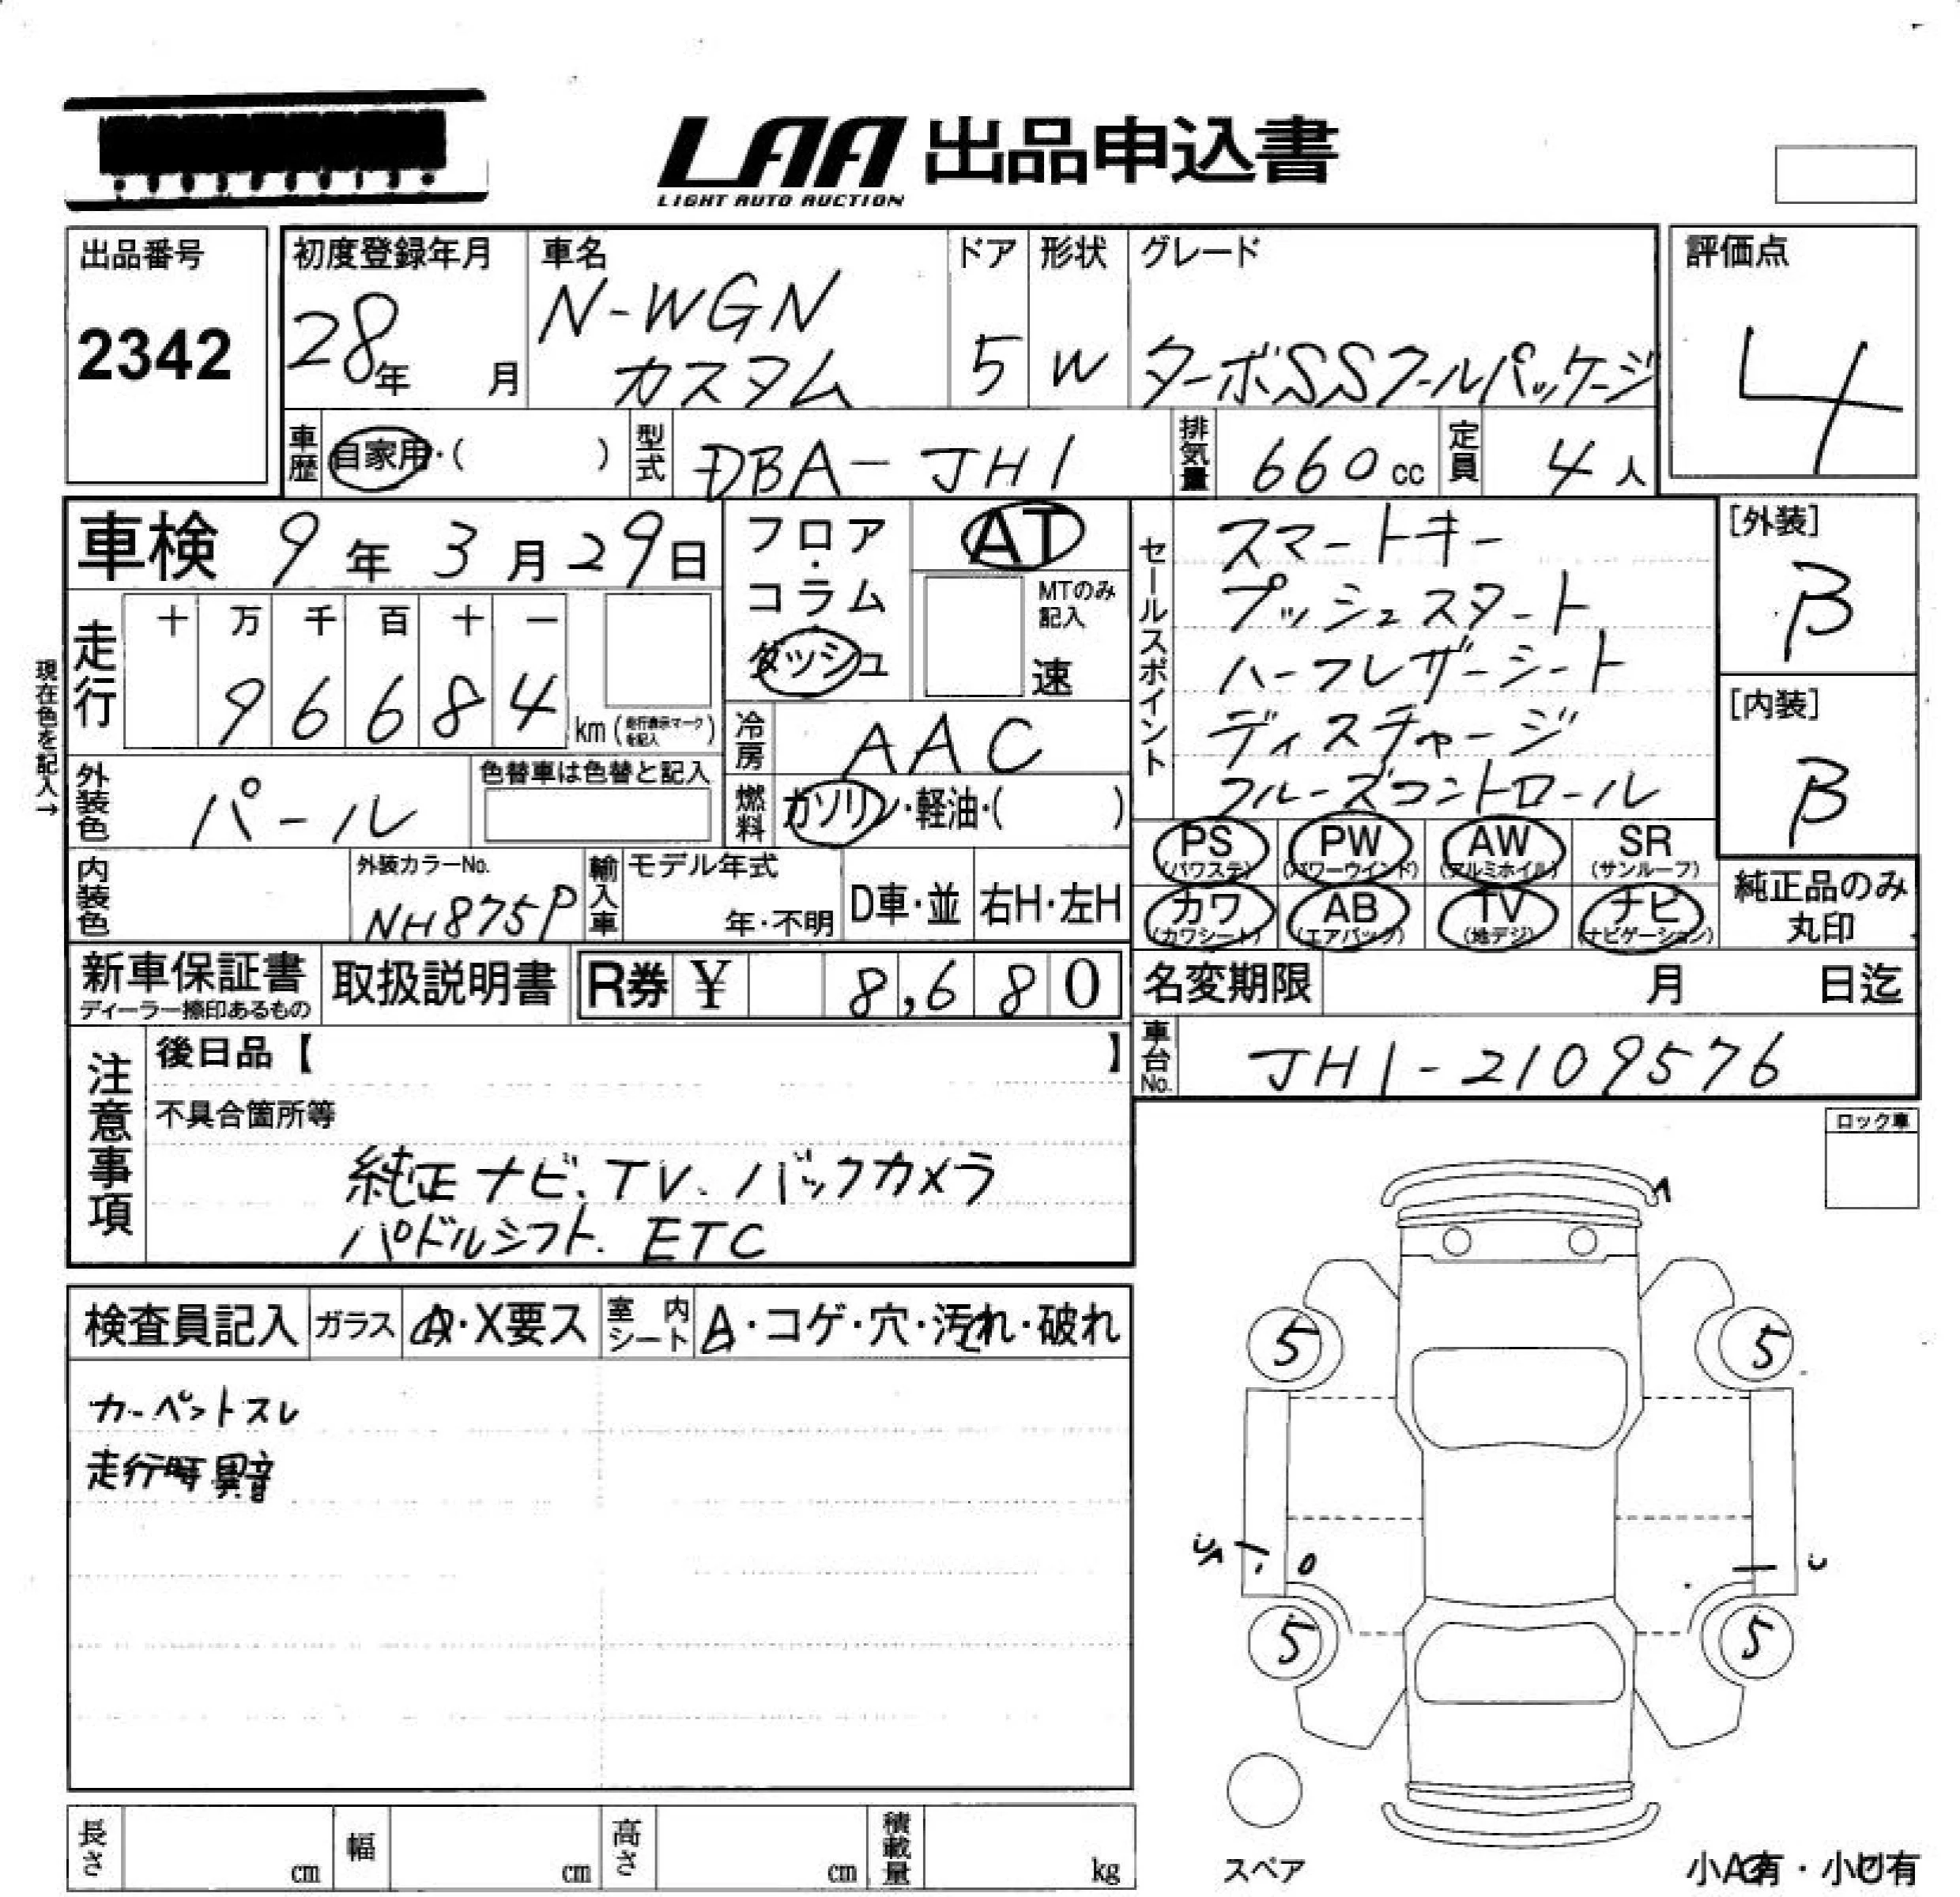 LAA 出品申込書
LIGHT AUTO AUCTION
出品番号
2342
初度登録年月
28年 月
車名
N-WGN
カスタム
ドア
5
形状
W
グレード
ターボSSクールパッケージ
評価点
4
車歴 自家用・( )
型式 DBA-JH1
排気量 660cc
定員 4人
車検 9年3月29日
フロア・コラム・ダッシュ
AT
MTのみ記入
速
セールスポイント
スマートキー
プッシュスタート
ハーフレザーシート
ディスチャージ
クルーズコントロール
[外装]
B
[内装]
B
現在色を記入→
走行 十 万 千 百 十 一
96684 km (走行表示マークを記入)
冷房 AAC
外装色 パール
色替車は色替と記入
燃料 ガソリン・軽油・( )
PS(パワステ) PW(パワーウインド) AW(アルミホイル) SR(サンルーフ)
カワ(カワシート) AB(エアバック) TV(地デジ) ナビ(ナビゲーション)
純正品のみ
丸印
内装色
外装カラーNo.
NH875P
輸入車
モデル年式
年・不明
D車・並
右H・左H
新車保証書
ディーラー捺印あるもの
取扱説明書
R券 ¥ 8,680
名変期限 月 日迄
車台No. JH1-2109576
注意事項
後日品【 】
不具合箇所等
純正ナビ.TV.バックカメラ
パドルシフト.ETC
ロック車
検査員記入
ガラス A・X要ス
室内シート A・コゲ・穴・汚れ・破れ
カーペットスレ
走行時異音
5
5
5
5
スペア
長さ cm
幅 cm
高さ cm
積載量 kg
小A有・小U有